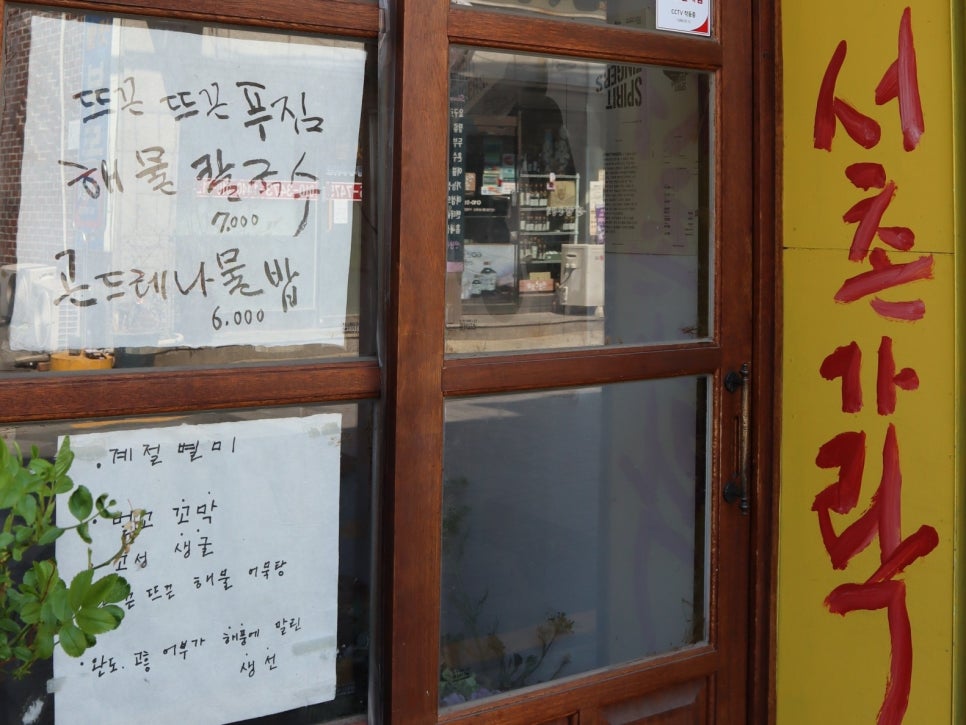 뜨끈 뜨끈 푸짐
해물 칼국수
7.000
곤드레나물밥
6.000
· 계절별미
벌교 꼬막
고성 생굴
뜨끈 해물 어묵탕
· 완도. 고흥 어부가 해풍에 말린
생선
서초가락
SPIRIT
CCTV 작동중